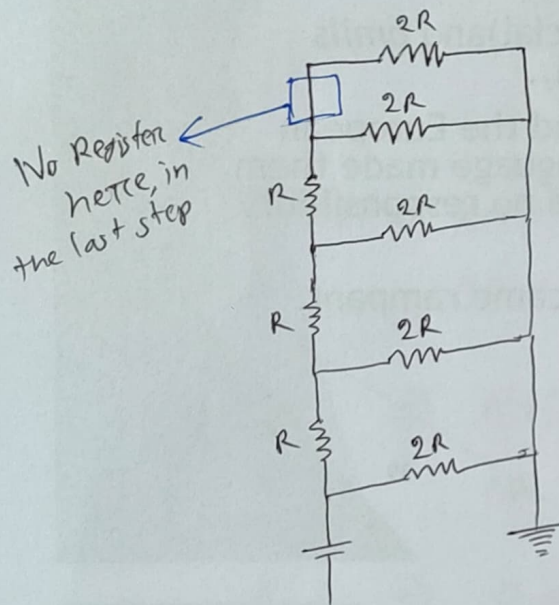 2R
2R
No Register
here, in
the last step
R
2R
R
2R
R
2R